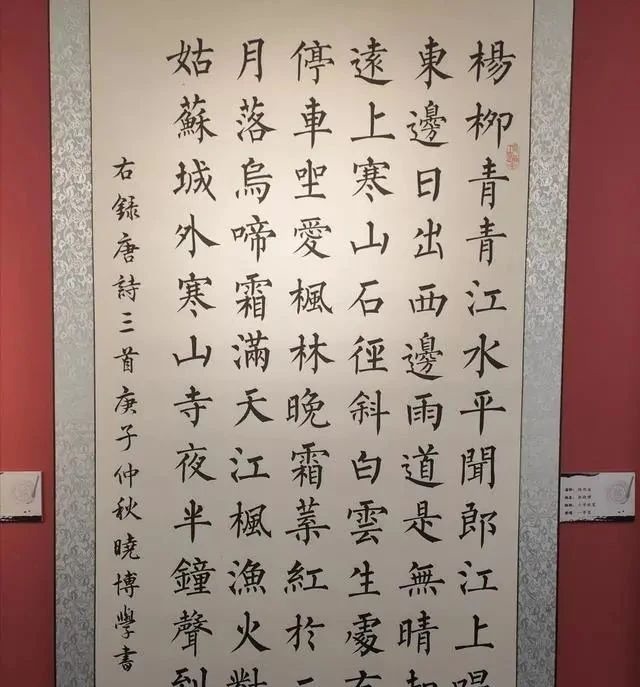 楊栁青青江水平聞郎江上唱
東邊日出西邊雨道是無晴却
遠上寒山石徑斜白雲生處有
停車坐愛楓林晚霜葉紅於二
月落烏啼霜滿天江楓漁火對
姑蘇城外寒山寺夜半鐘聲到
右録唐詩三首庚子仲秋曉博學書